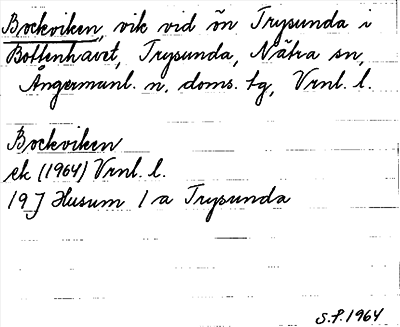 Bockviken, vik vid ön Trysunda i
Bottenhavet, Trysunda, Nätra sn,
Ångermanl. n, doms. tg, Vrnl. l.
Bockviken
ek (1964) Vrnl. l.
19 J Husum 1 a Trysunda
S.P. 1964